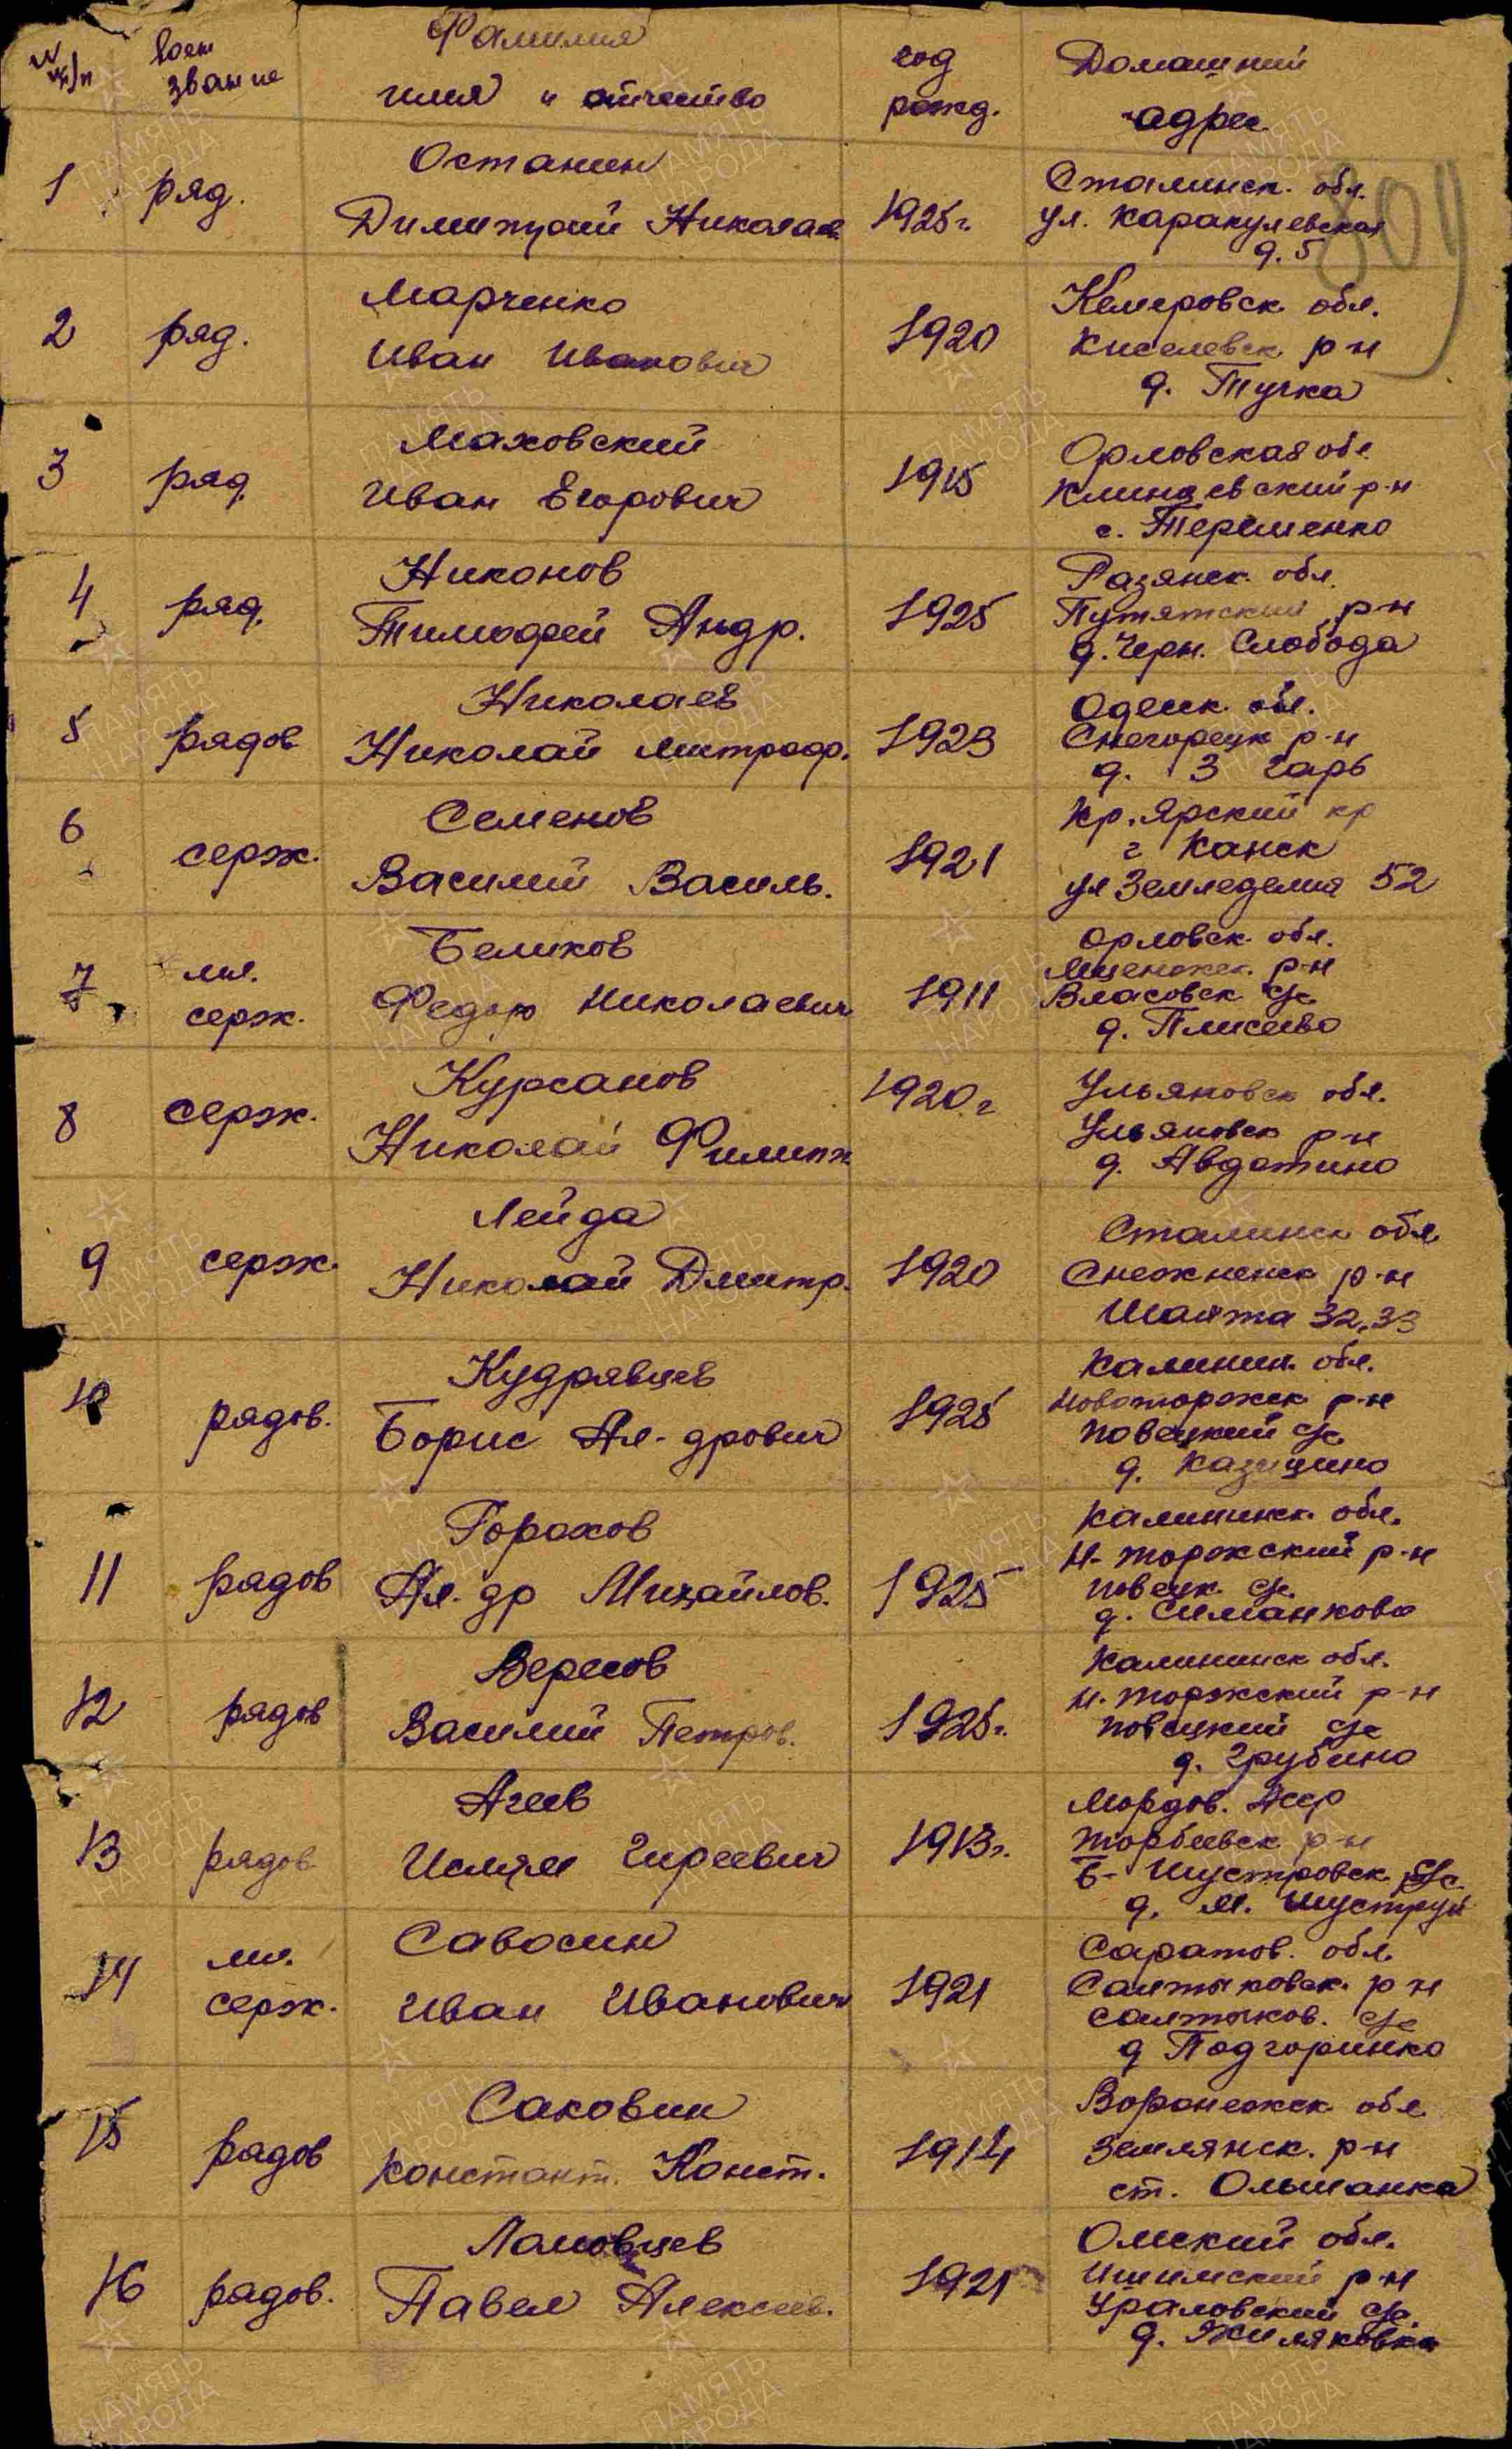 N п/п
воен звание
Фамилия имя и отчество
год рожд.
Домашний адрес
809
1
ряд.
Останин
Димитрий Николаев.
1925 г.
Сталинск. обл.
ул. Каракулевская
д. 5
2
ряд.
Марченко
Иван Иванович
1920
Кемеровск обл.
Киселевск р-н
д. Тучка
3
ряд.
Маховский
Иван Егорович
1915
Орловская обл
Клинцевский р-н
с. Терешенко
4
ряд.
Никонов
Тимофей Андр.
1925
Рязанск. обл.
Путятский р-н
д. Черн. Слобода
5
рядов
Николаев
Николай Митроф.
1923
обл.
р-н
д. 3 Гарь
6
серж.
Семенов
Василий Василь.
1921
Кр. Ярский кр
г Канск
ул Земледелия 52
7
мл.
серж.
Беликов
Федор Николаевич
1911
Орловск. обл.
Мценскск. р-н
Власовск с/с
д. Плисеево
8
серж.
Курсанов
Николай Филипп
1920 г
Ульяновск обл.
Ульяновск р-н
д. Авдотино
9
серж.
Лейда
Николай Дмитр.
1920
Сталинск обл
Снежненск р-н
Шахта 32,33
10
рядов.
Кудрявцев
Борис Ал-дрович
1925
Калинин. обл.
Новоторжск р-н
Повецкий с/с
д.
11
рядов
Горохов
Ал-др Михайлов.
1925
Калининск. обл.
Н-торжский р-н
Повецк. с/с
д. Симанково
12
рядов
Вересов
Василий Петров.
1925 г.
Калининск обл.
Н. торжский р-н
Повецкий с/с
д. Грубино
13
рядов
Агеев
Исмям Гиреевич
1913 г.
Мордов. Асср
Торбеевск р-н
Б-Шустровск с/с
д. М. Шуструй
14
мл.
серж.
Савосин
Иван Иванович
1921
Саратов. обл.
Салтыковск. р-н
Салтыков. с/с
д Подгоринка
15
рядов
Саковин
Констант. Конст.
1914
Воронежск обл
Землянск. р-н
ст. Ольшанка
16
рядов.
Ламовцев
Павел Алексеев.
1921
Омский обл.
Ишимский р-н
Ураловский с/с.
д. Жиляковка
ПАМЯТЬ НАРОДА